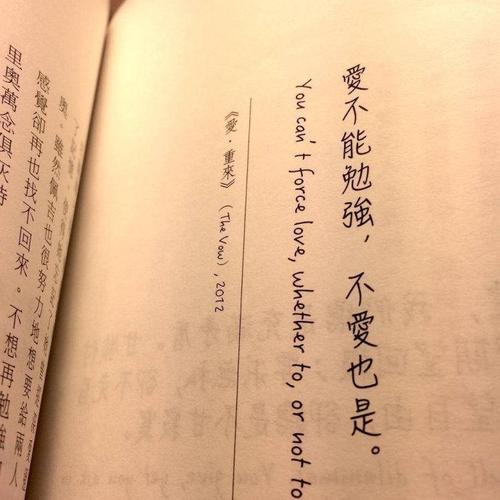 愛不能勉強，不愛也是。
You can't force love, whether to, or not to
《愛·重來》（The Vow），2012
奧。雖然佩吉也很努力地想要給兩人
感覺卻再也找不回來。不想再勉強
里奧萬念俱灰時